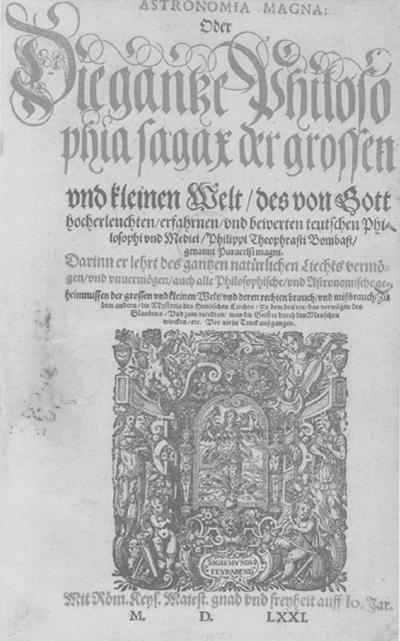 ASTRONOMIA MAGNA:
Oder
Die gantze Philoso
phia sagax der grossen
vnd kleinen Welt / des von Gott
hocherleuchten / erfahrnen / vnd bewerten teutschen Phi-
losophi vnd Medici / Philippi Theophrasti Bombast /
genannt Paracelsi magni.
Darinn er lehrt des gantzen natürlichen Liechts vermö-
gen / vnd vnuermögen / auch alle Philosophische / vnd Astronomische ge-
heimnussen der grossen vnd kleinen Welt / vnd deren rechten brauch / vnd mißbrauch / Zu
dem andern / die Mysteria des Himlischen Liechts / Zu dem dritten / das vermögen des
Glaubens / Vnd zum vierdten / was die Geister durch den Menschen
wircken / etc. Vor nie in Truck außgangen.
SIGISMVNDVS
FEYRABENDT
Mit Röm. Keys. Maiest. gnad vnd freyheit auff 10. Jar.
M. D. LXXI.